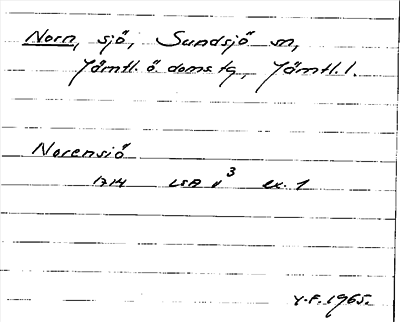 Norn, sjö, Sundsjö sn,
Jämtl. ö. doms. tg, Jämtl. l.
Norensiö
1714 LSA v³ ex. 1
Y.F. 1965.